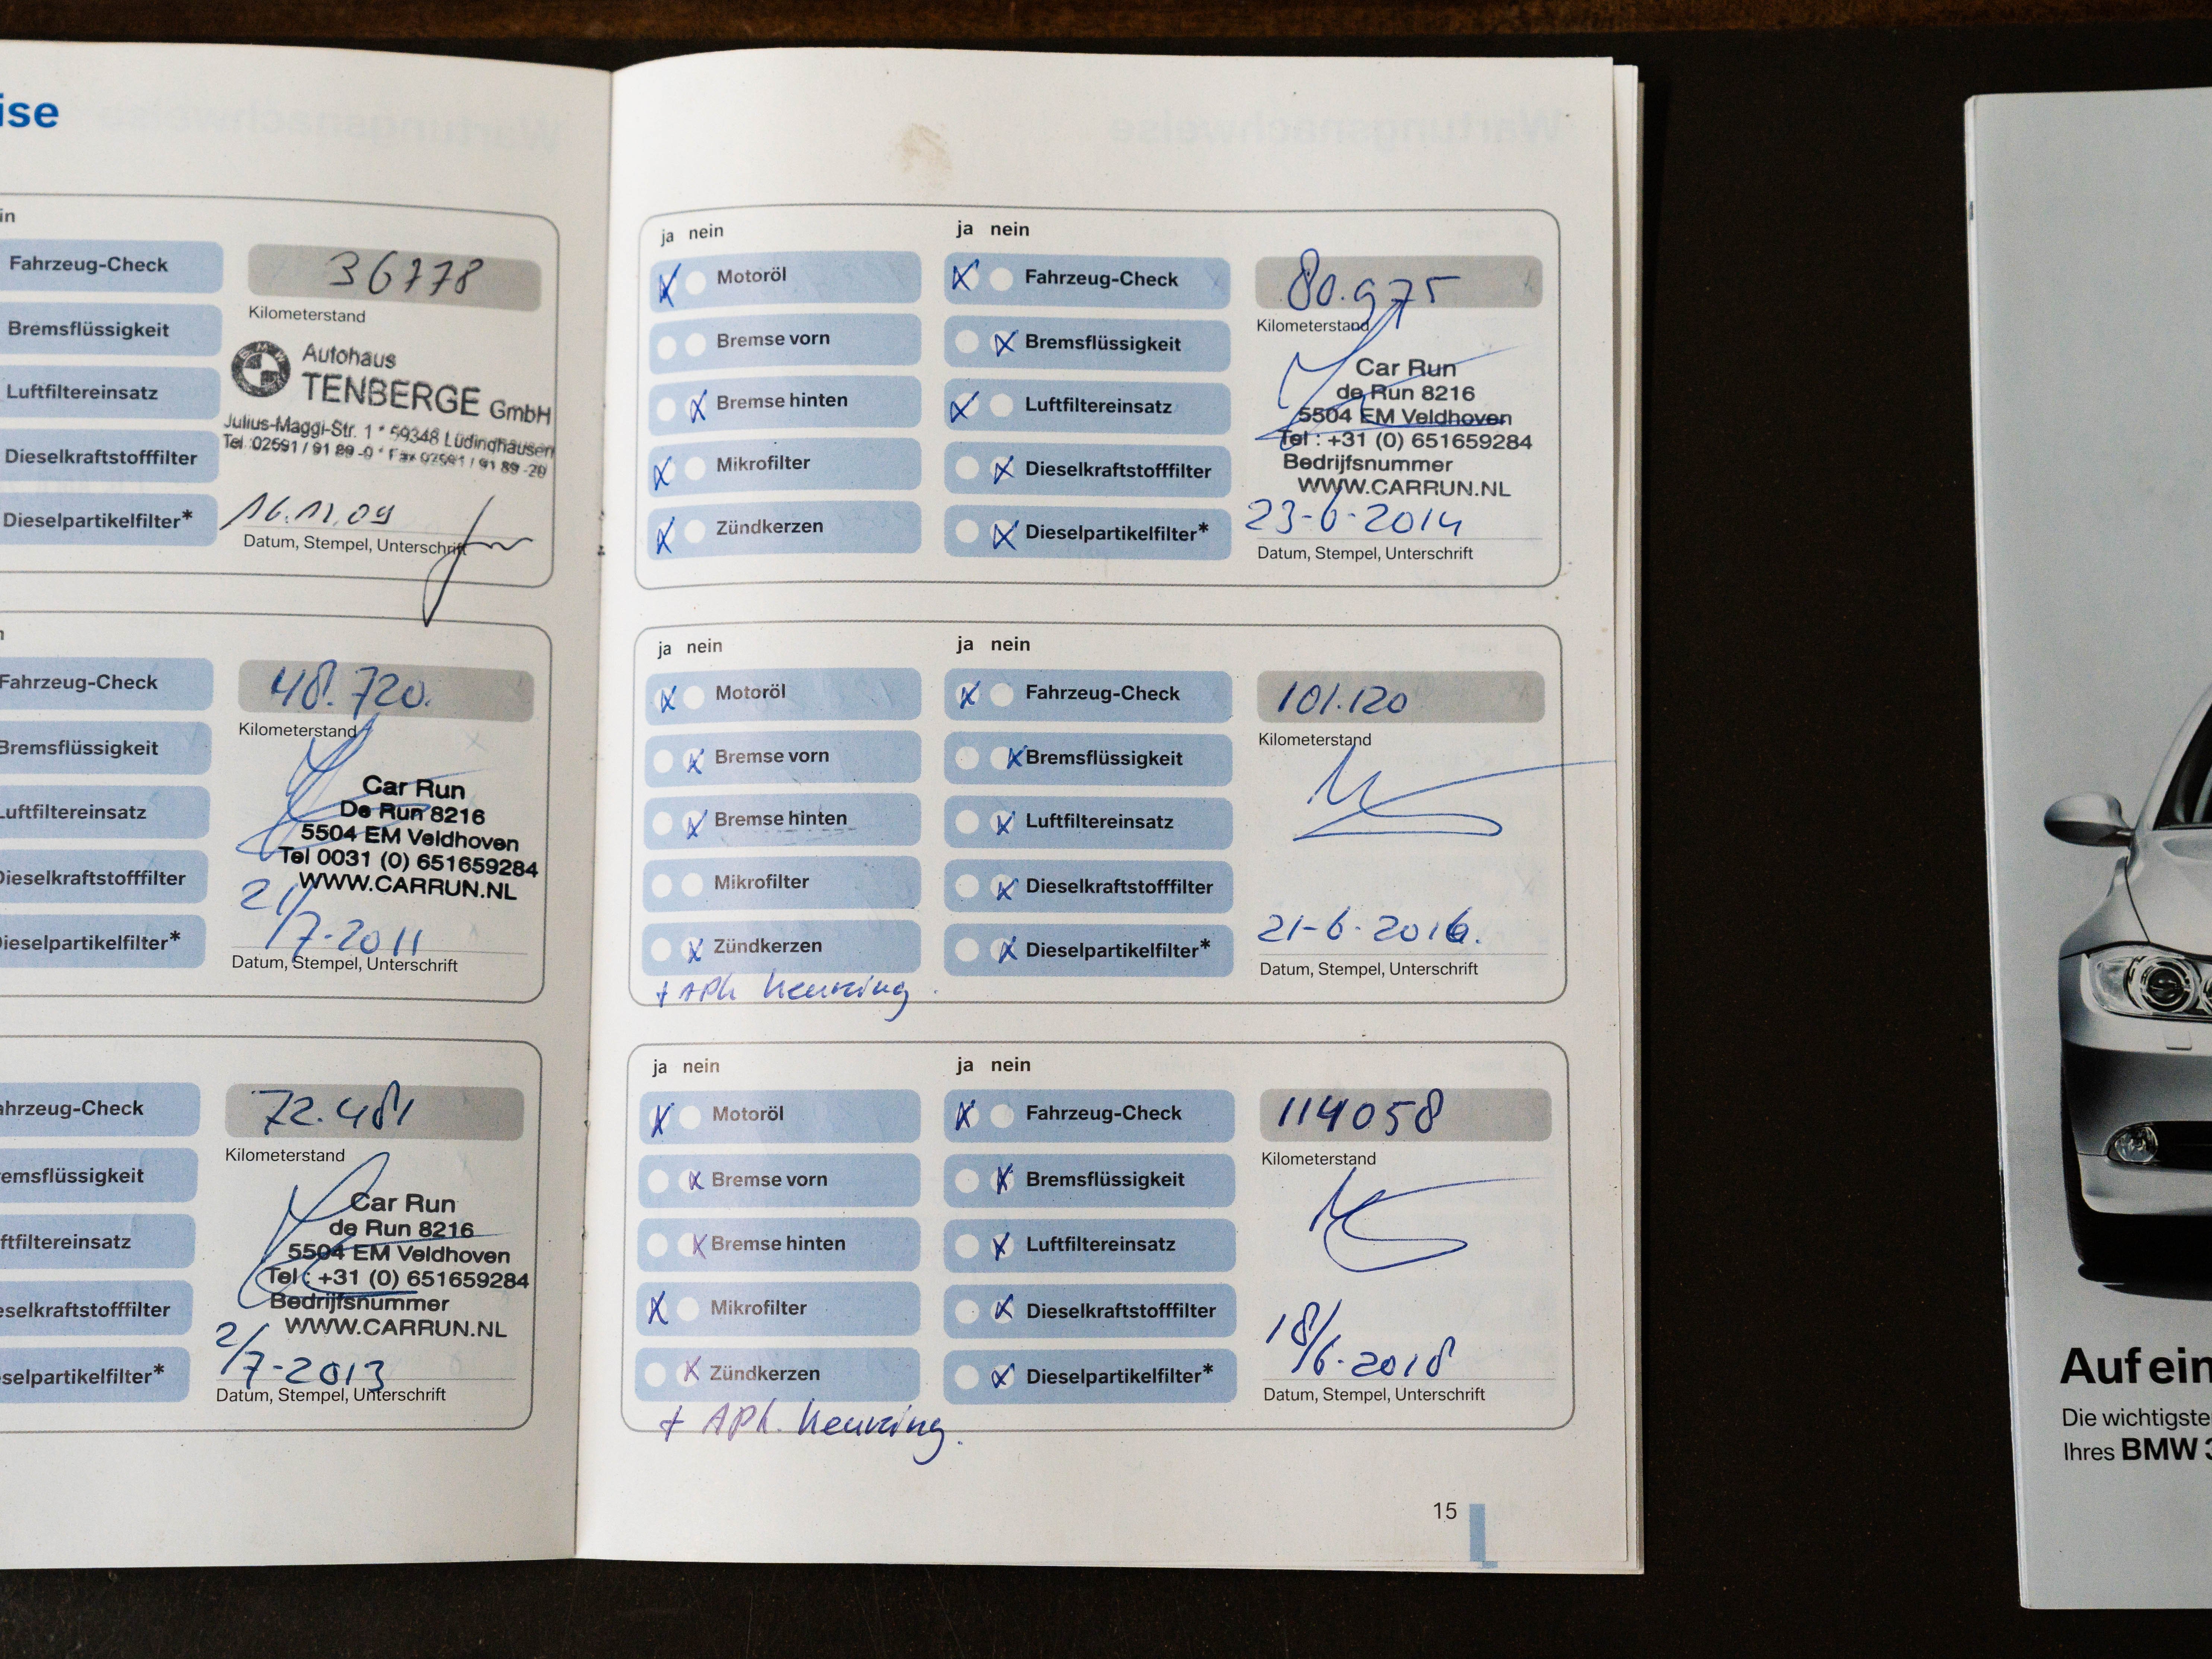 ise
in
Fahrzeug-Check
36778
Kilometerstand
Bremsflüssigkeit
BMW
Autohaus
TENBERGE GmbH
Luftfiltereinsatz
Julius-Maggi-Str. 1 * 59348 Lüdinghausen
Tel. 02591 / 91 89 -0 * Fax 02591 / 91 89 -20
Dieselkraftstofffilter
Dieselpartikelfilter*
16.11.09
Datum, Stempel, Unterschrift
n
Fahrzeug-Check
48.720.
Kilometerstand
Bremsflüssigkeit
Luftfiltereinsatz
Car Run
De Run 8216
5504 EM Veldhoven
Tel 0031 (0) 651659284
WWW.CARRUN.NL
Dieselkraftstofffilter
Dieselpartikelfilter*
21/7-2011
Datum, Stempel, Unterschrift
ahrzeug-Check
72.481
Kilometerstand
remsflüssigkeit
ftfiltereinsatz
Car Run
de Run 8216
5504 EM Veldhoven
Tel : +31 (0) 651659284
Bedrijfsnummer
WWW.CARRUN.NL
eselkraftstofffilter
selpartikelfilter*
2/7-2013
Datum, Stempel, Unterschrift
ja nein
ja nein
Motoröl
Fahrzeug-Check
80.975
Kilometerstand
Bremse vorn
Bremsflüssigkeit
Bremse hinten
Luftfiltereinsatz
Mikrofilter
Dieselkraftstofffilter
Zündkerzen
Dieselpartikelfilter*
Car Run
de Run 8216
5504 EM Veldhoven
Tel : +31 (0) 651659284
Bedrijfsnummer
WWW.CARRUN.NL
23-6-2014
Datum, Stempel, Unterschrift
ja nein
ja nein
Motoröl
Fahrzeug-Check
101.120
Kilometerstand
Bremse vorn
Bremsflüssigkeit
Bremse hinten
Luftfiltereinsatz
Mikrofilter
Dieselkraftstofffilter
Zündkerzen
Dieselpartikelfilter*
21-6-2016.
Datum, Stempel, Unterschrift
+ APK keuring.
ja nein
ja nein
Motoröl
Fahrzeug-Check
114058
Kilometerstand
Bremse vorn
Bremsflüssigkeit
Bremse hinten
Luftfiltereinsatz
Mikrofilter
Dieselkraftstofffilter
Zündkerzen
Dieselpartikelfilter*
18/6-2018
Datum, Stempel, Unterschrift
+ APK. keuring.
15
Auf ein
Die wichtigste
Ihres BMW 3